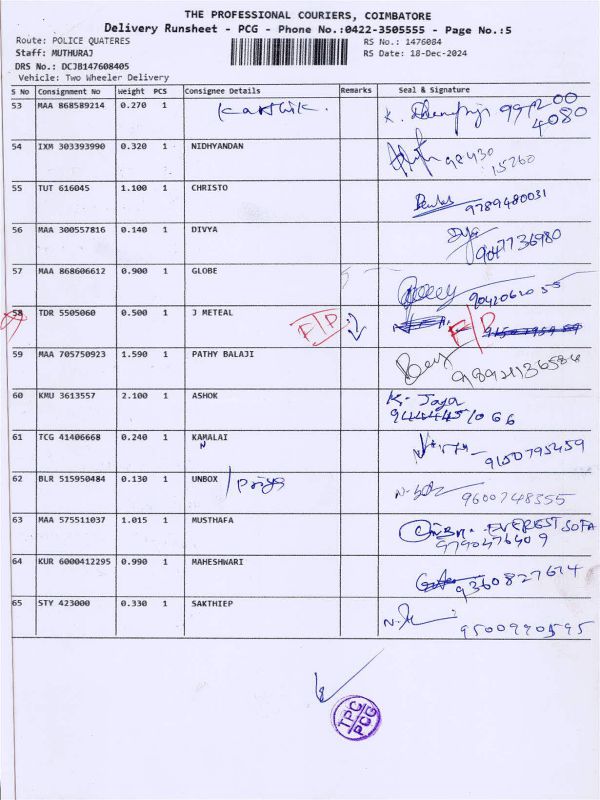 THE PROFESSIONAL COURIERS, COIMBATORE
Delivery Runsheet - PCG - Phone No.:0422-3505555 - Page No.:5
Route: POLICE QUATERES
RS No.: 1476084
Staff: MUTHURAJ
RS Date: 18-Dec-2024
DRS No.: DCJB147608405
Vehicle: Two Wheeler Delivery
S No Consignment No Weight PCS Consignee Details Remarks Seal & Signature
53 MAA 868589214 0.270 1 Karthik. K.
54 IXM 303393990 0.320 1 NIDHYANDAN 98430 15260
55 TUT 616045 1.100 1 CHRISTO 9789480031
56 MAA 300557816 0.140 1 DIVYA 9047736980
57 MAA 868606612 0.900 1 GLOBE
58 TDR 5505060 0.500 1 J METEAL F/P F/P
59 MAA 705750923 1.590 1 PATHY BALAJI
60 KMU 3613557 2.100 1 ASHOK K. Jaya
61 TCG 41406668 0.240 1 KAMALAI 9150795459
N
62 BLR 515950484 0.130 1 UNBOX /Priya 9600748355
63 MAA 575511037 1.015 1 MUSTHAFA EVEREST SOFA
9790476409
64 KUR 6000412295 0.990 1 MAHESHWARI 9360827674
65 STY 423000 0.330 1 SAKTHIEP 9500990595
TPC
PCG